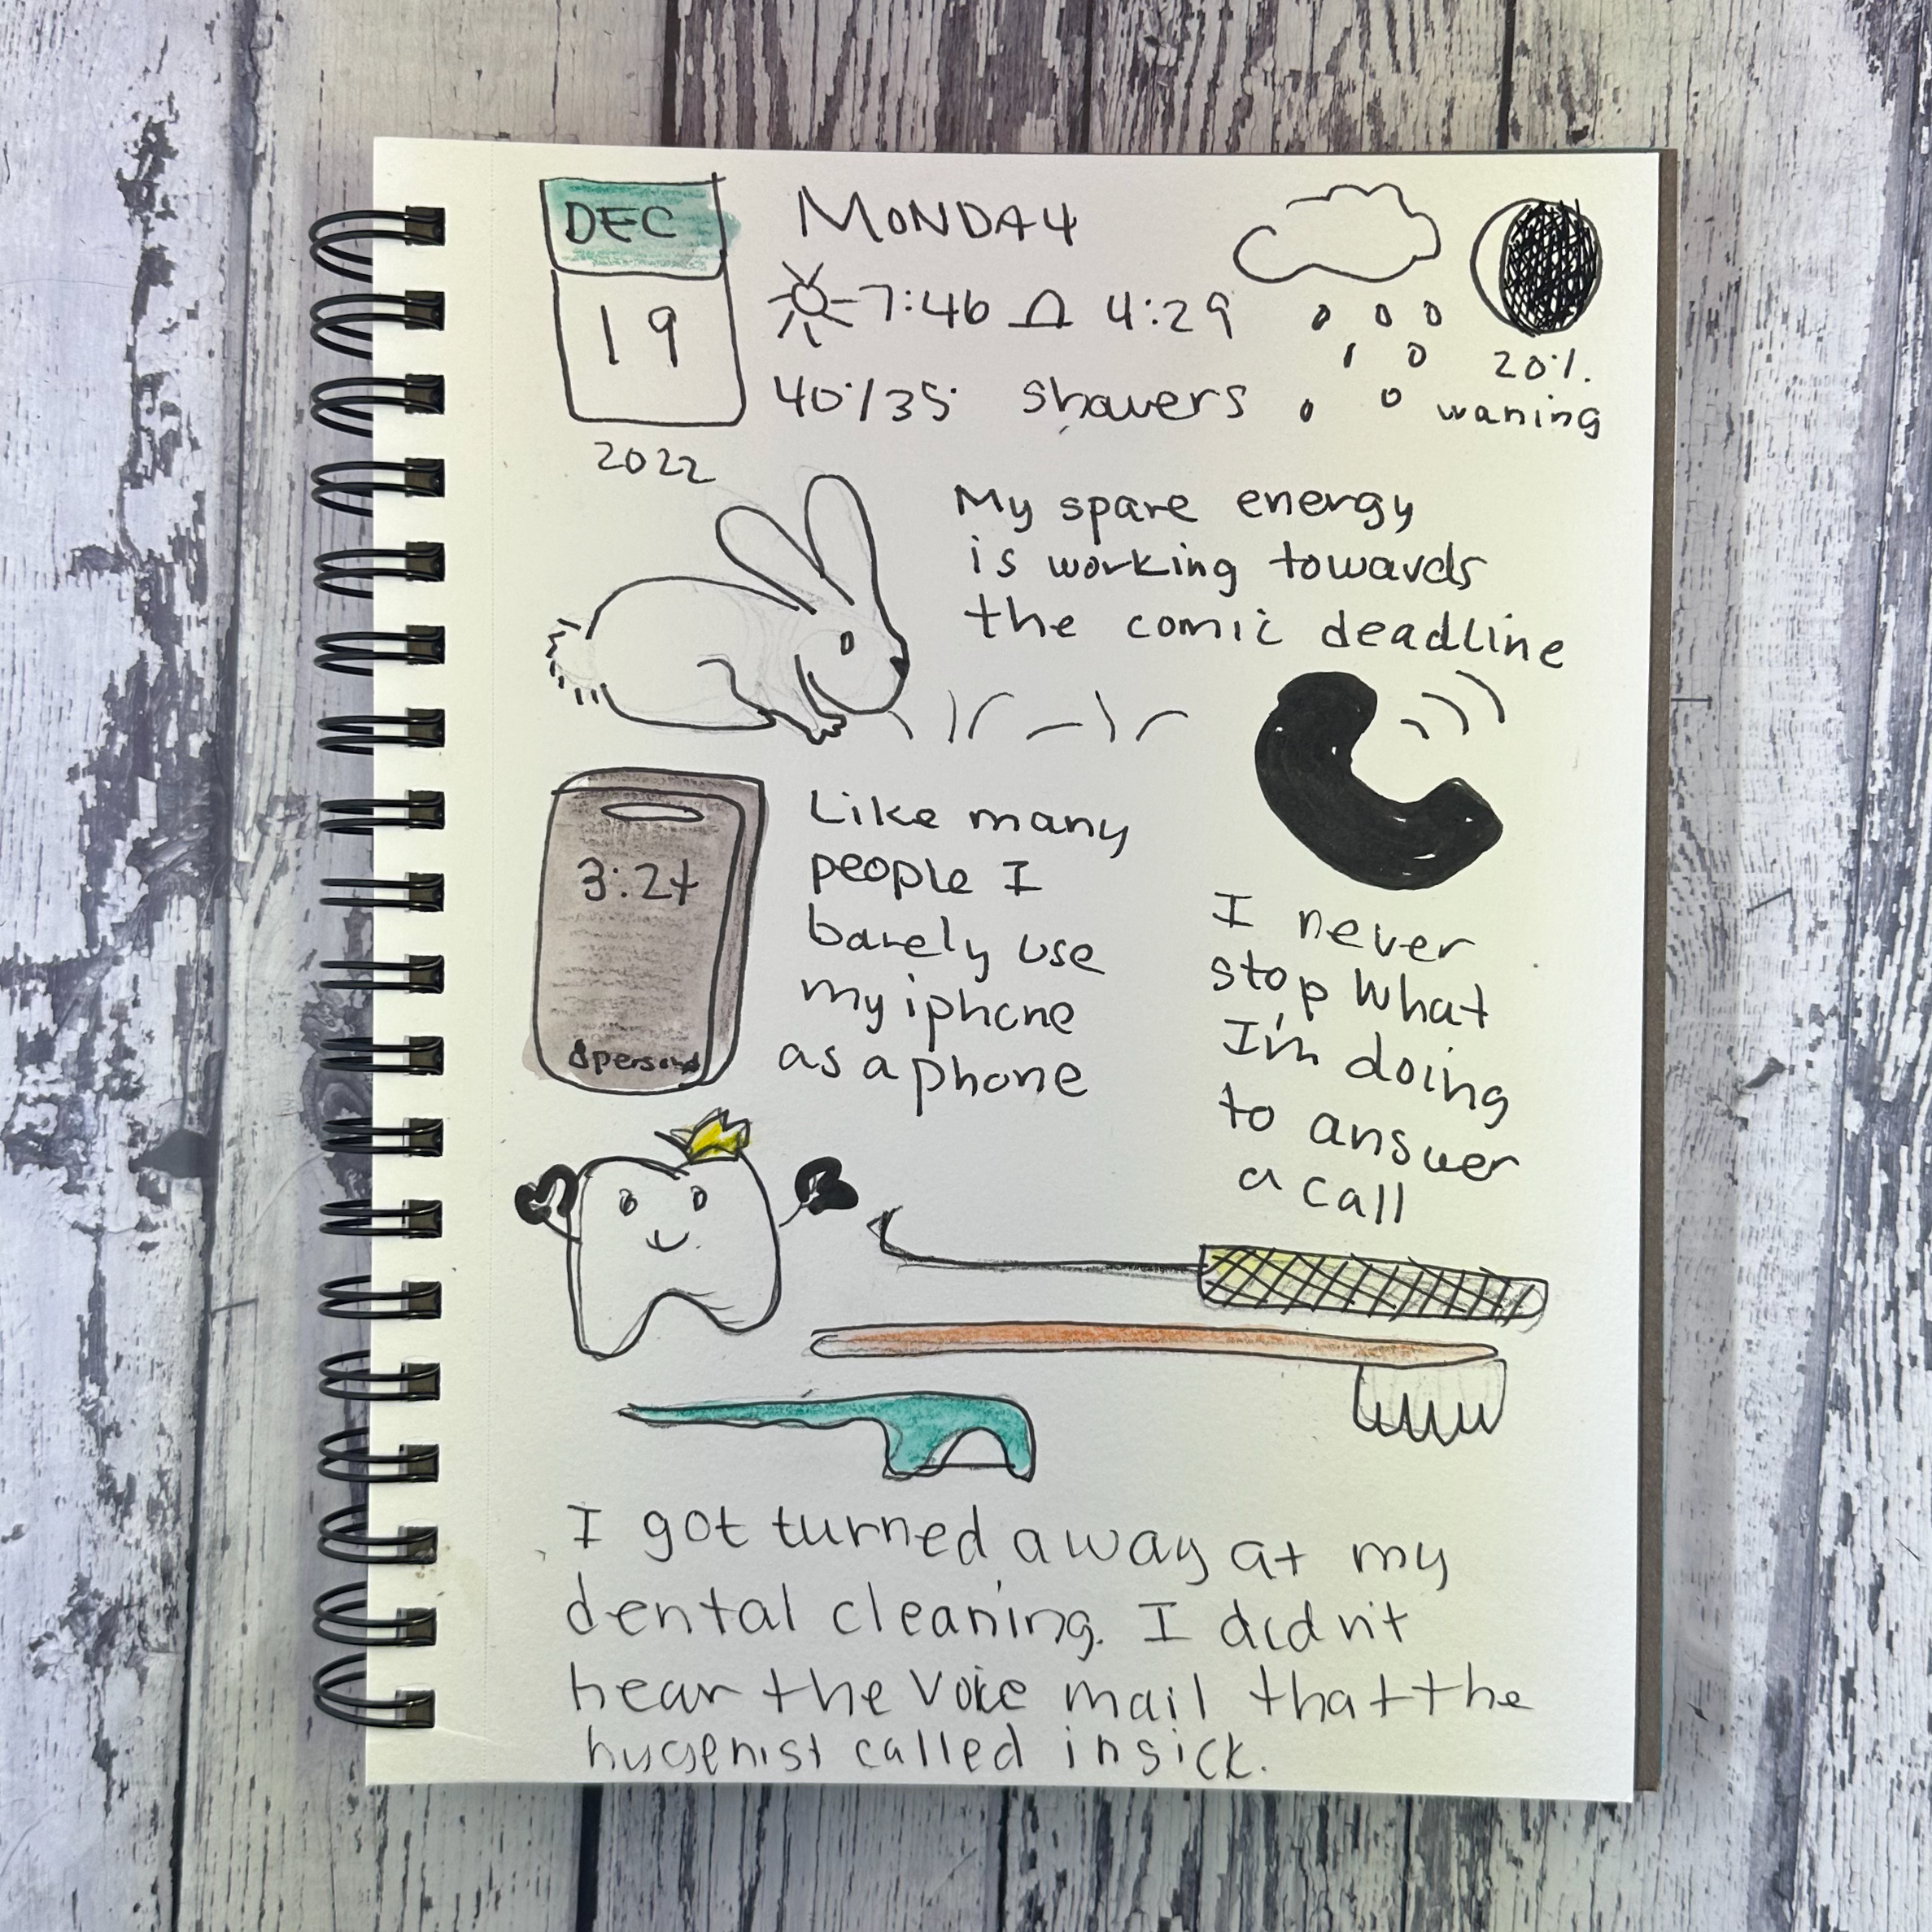 DEC
19
2022
MONDAY
7:46 4:29
40°/35° showers
20%
waning
My spare energy
is working towards
the comic deadline
3:27
Like many
people I
barely use
my iphone
as a phone
I never
stop what
I'm doing
to answer
a call
I got turned away at my
dental cleaning. I didn't
hear the voice mail that the
hygenist called in sick.